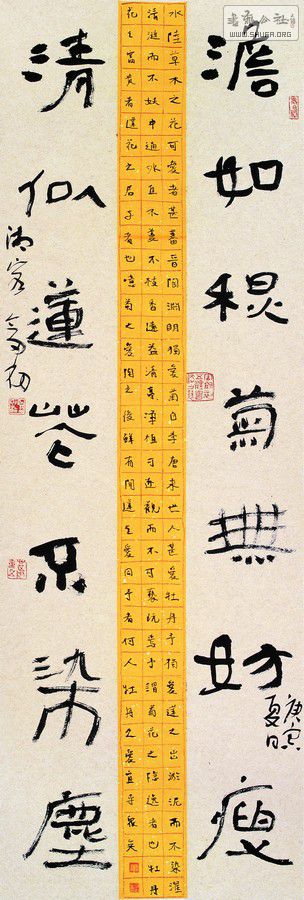 WWW.SHUFA.ORG
澹如秋菊無妨瘦
庚寅
夏日
水陸草木之花可愛者甚蕃晉陶淵明獨愛菊自李唐來世人甚愛牡丹予獨愛蓮之出淤泥而不染濯
清漣而不妖中通外直不蔓不枝香遠益清亭淨植可近觀而不可褻玩焉予謂菊花之隱逸者也牡丹
花之富貴者蓮花之君子者也噫菊之愛陶之後鮮有聞蓮之愛同予者何人牡丹之愛宜乎衆矣
清似蓮花不染塵